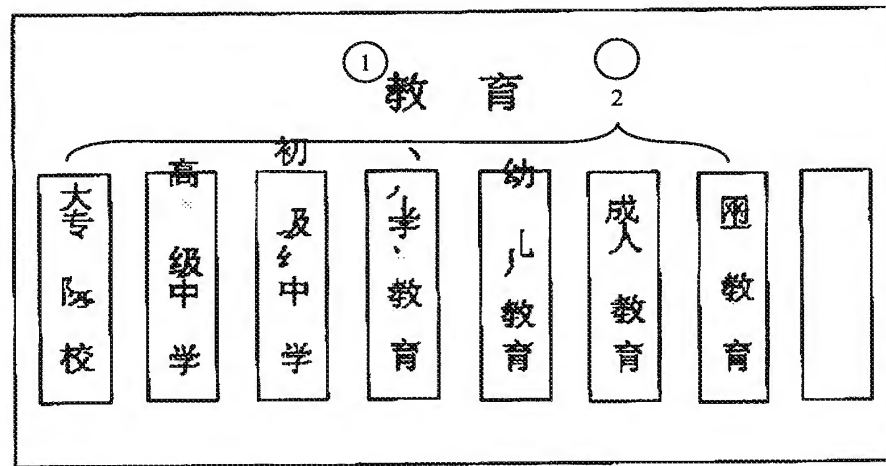 ①
教育
2
大专院校
高级中学
初级中学
小学教育
幼儿教育
成人教育
教育